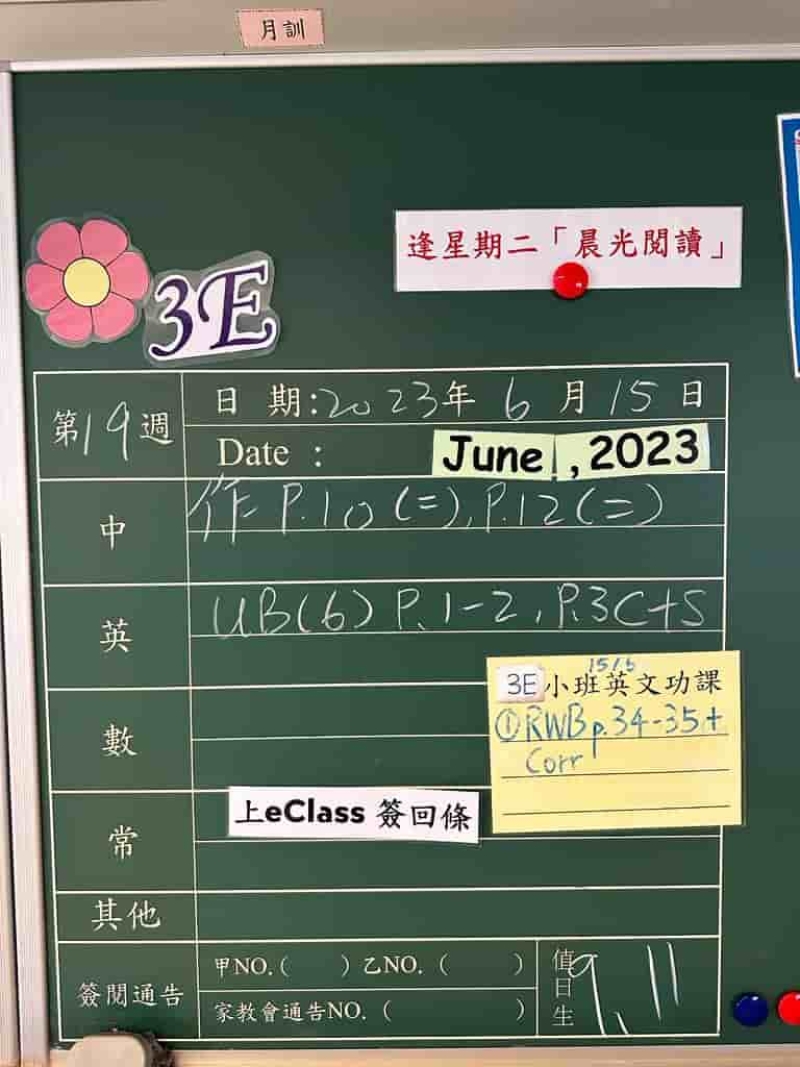 月訓
逢星期二「晨光閱讀」
3E
第19週
日期:2023年6月15日
Date : June ,2023
中
作 P.10(二),P.12(二)
英
UB(6) P.1-2,P.3C+S
3E小班英文功課
15/6
①RWB p.34-35+
Corr
數
常
上eClass 簽回條
其他
簽閱通告
甲NO.( ) 乙NO.( )
家教會通告NO.( )
值日生
9、11